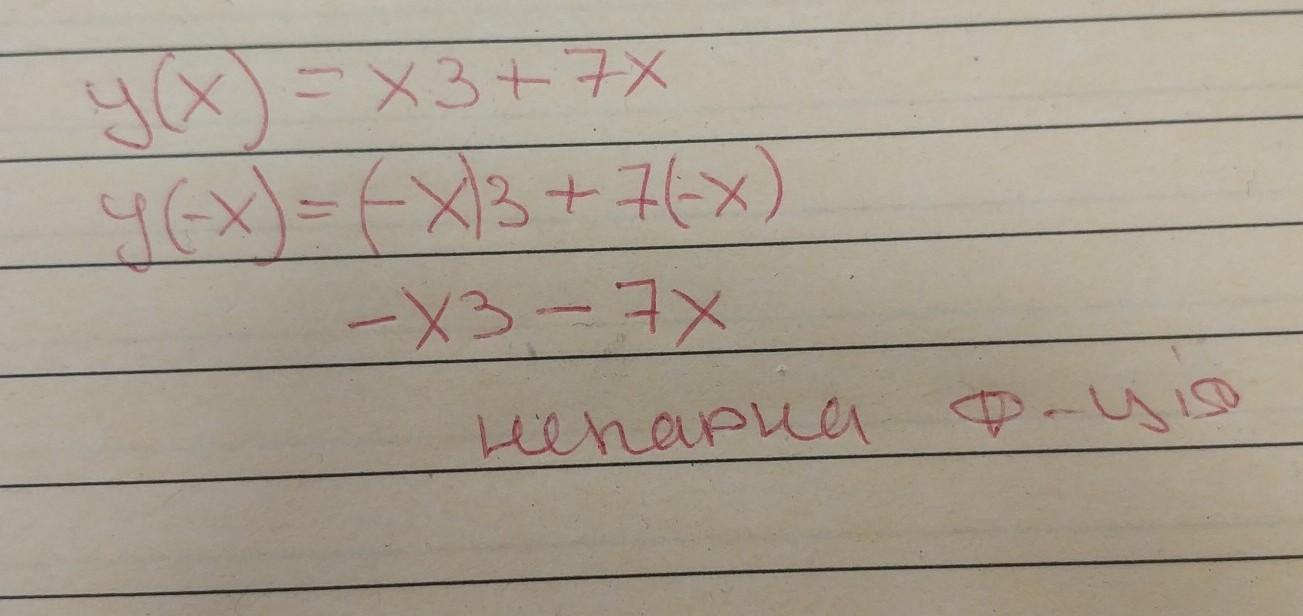 y(x) = x3 + 7x
y(-x) = (-x)3 + 7(-x)
-x3 - 7x
непарна ф-ція